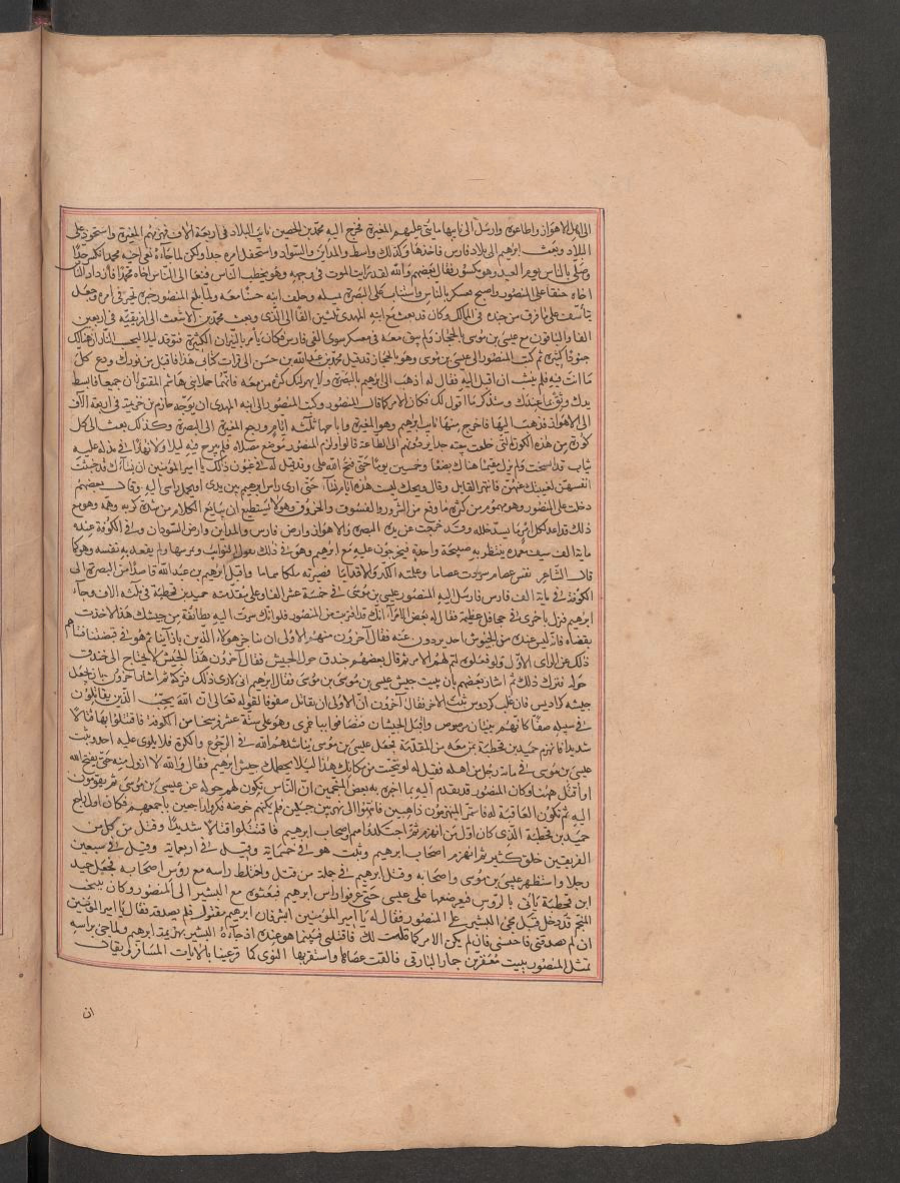 الى اهل الاهواز واطاعوه وارسل الى نايبها مائتى عليهم المغيرة فخرج اليه محمد بن الحصين نايب البلاد فى اربعة الاف فهزمهم المغيرة واستحوذ على
البلاد وبعث ابرهيم الى بلاد فارس فاخذها وكذلك واسط والمداين والسواد واستفحل امره جدا ولكن لما جاءه نعى اخيه محمد انكسر جدا
وصلى بالناس يوم العيد وهو مكسور فقال بعضهم والله لقد رايت الموت فى وجهه وهو يخطب الناس فنعا الى الناس اخاه محمدا فازداد الناس
حنقا على المنصور واصبح عسكر بالناس واستناب على البصرة نميله وخلف ابنه حسنا معه ولما بلغ المنصور خبره تحير فى امره وجعل
يتأسف على ما فرق من جنده فى الممالك وكان قد بعث مع ابنه المهدى ثلثين الفا الى الرى وبعث محمد بن الاشعث الى افريقيه فى اربعين
الفا والباقون مع عيسى بن موسى بالحجاز ولم يبق معه فى معسكره سوى الفى فارس فكان يأمر بالنيران الكثيرة فتوقد ليلا ليحسب الناظر هنالك
جنودا كثيرة ثم كتب المنصور الى عيسى بن موسى وهو بالحجاز قد قتل محمد بن عبد الله بن حسن اذا قرات كتابى هذا فاقبل من فورك ودع كل
ما انت فيه فلم ينشب ان اقبل اليه فقال له اذهب الى ابرهيم بالبصرة ولا يهولنك كثرة من معه فانهما جملا بنى هاشم المقتولان جميعا فابسط
يدك وثق بما عندك وستذكر ما اقول لك فكان الامر كما قال المنصور وكتب المنصور الى ابنه المهدى ان يوجه خازم بن خزيمة فى اربعة الاف
الى الاهواز فذهب اليها فاخرج منها نايب ابرهيم وهو المغيرة واباحها ثلثة ايام ورجع المغيرة الى البصرة وكذلك بعث الى كل
كورة من هذه الكور التى خلعت بيعته جدا يردونهم الى الطاعة قالوا ولزم المنصور موضع مصلاه فلم يبرح فيه ليلا ولا نهارا فى بذلة عليه
ثياب قد اتسخت فلم يزل مقيما هناك بضعا وخمسين يوما حتى فتح الله عليه وقد قيل له فى غبون ذلك يا امير المؤمنين ان نساءك قد خبثت
انفسهن لغيبتك عنهن فانتهر القايل وقال ويحك ليست هذه ايام نساء حتى ارى راس ابرهيم بين يدى او يحمل راسى اليه وقال بعضهم
دخلت على المنصور وهو مهموم من كثرة ما وقع من الشرور والفسوق والخروق وهو لا يستطيع ان يتابع الكلام من شدة كربه وهمه وهو مع
ذلك قد اعد لكل امر ما يسد خلله وقد خرجت عن يده البصرة والاهواز وارض فارس والمداين وارض السودان وفى الكوفة عنده
ماية الف سيف مغمدة ينتظر به صيحة واحدة فيخرجون عليه مع ابرهيم وهو فى ذلك يعرك النوايب ويمرسها ولم يقعد به نفسه وهو كما
قال الشاعر نفس عصام سودت عصاما وعلمته الكر والاقداما فصيرته ملكا هماما واقبل ابرهيم بن عبد الله قاصدا من البصرة الى
الكوفة فى ماية الف فارس فارسل اليه المنصور عيسى بن موسى فى خمسة عشر الفا وعلى مقدمته حميد بن قحطبة فى ثلثة الاف وجاء
ابرهيم فنزل باخمرى فى جحافل عظيمة فقال له بعض الامراء انك قد اقتربت من المنصور فلو انك سرت اليه بطائفة من جيشك هذا لاخذت
بقفاه فانه ليس عنده من الجيوش احد يردون عنه فقال آخرون منهم الاولى ان نناجز هولاء الذين باذاينا ثم هو فى قبضتنا فثناهم
ذلك عن الراى الاول ولو فعلوه لتم لهم الامر ثم قال بعضهم خندق حول الجيش فقال آخرون هذا الجيش لا يحتاج الى خندق
حوله فترك ذلك ثم اشار بعضهم بان يبيت جيش عيسى بن موسى فقال ابرهيم انى لا ارى ذلك فتركه ثم اشار آخرون بان يجعل
جيشه كراديس فان غلب كردوس ثبت الاخر فقال آخرون ان الاولى ان نقاتل صفوفا لقوله تعالى ان الله يحب الذين يقاتلون
فى سبيله صفا كانهم بنيان مرصوص واقبل الجيشان فتصافوا بباخمرى وهو على ستة عشر فرسخا من الكوفة فاقتتلوا بها قتالا
شديدا فانهزم حميد بن قحطبة بمن معه من المقدمة فجعل عيسى بن موسى يناشدهم الله فى الرجوع والكرة فلا يلوى عليه احد وثبت
عيسى بن موسى فى مائة رجل من اهله فقيل له لو تنحيت من مكانك هذا لئلا يحطمك جيش ابرهيم فقال والله لا ازول منه حتى يفتح الله
او اقتل ههنا وكان المنصور قد تقدم اليه بما اخبره به بعض المنجمين ان الناس تكون لهم جولة عن عيسى بن موسى ثم يفوزون
اليه ثم تكون العاقبة له فاستمر المنهزمون ذاهبين فانتهوا الى نهر بين جبلين فلم يمكنهم خوضه فكروا راجعين باجمعهم فكان اول راجع
حميد بن قحطبة الذى كان اول من انهزم ثم اجتلدوا هم واصحاب ابرهيم فاقتتلوا قتالا شديدا وقتل من كل من
الفريقين خلق كثير ثم انهزم اصحاب ابرهيم وثبت هو فى خمسماية وقيل فى اربعماية وقيل فى سبعين
رجلا واستظهر عيسى بن موسى واصحابه وقتل ابرهيم فى جملة من قتل واختلط راسه مع رؤس اصحابه فجعل حميد
ابن قحطبة ياتى بالروس فيعرضها على عيسى حتى عرفوا راس ابرهيم فبعثوه مع البشير الى المنصور وكان نيبخت
المنجم قد دخل قبل مجئ البشير على المنصور فقال له يا امير المؤمنين ابشر فان ابرهيم مقتول فلم يصدقه فقال يا امير المؤمنين
ان لم تصدقنى فاحبسنى فان لم يكن الامر كما قلت لك فاقتلنى فبينما هو عنده اذ جاءه البشير بهزيمة ابرهيم ولما جئ براسه
تمثل المنصور ببيت معقر بن حمار البارقى فالقت عصاها واستقر بها النوى كما قر عينا بالاياب المسافر ويقال
ان